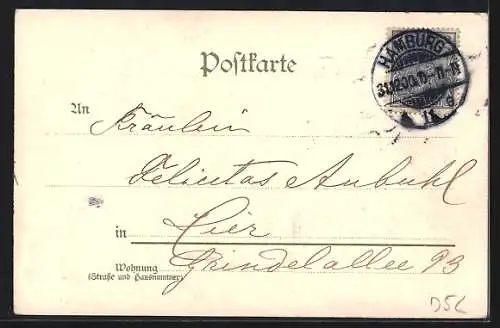 Postkarte
HAMBURG
31.12.00.
11-11
11 a
An
Fräulein
Felicitas Aubuhl
in Hier
Wohnung
(Straße und Hausnummer)
Grindelallee 93
D5L